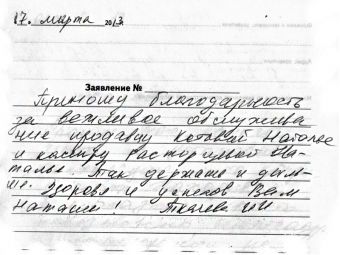 17. марта 2013
Заявление №
Приношу благодарность
за вежливое обслужива
ние продавцу Котовой Наталье
и кассиру Расторцевой На-
талье. Так держать и даль-
ше. Здоровья и успехов Вам
Наташи! Ткачева